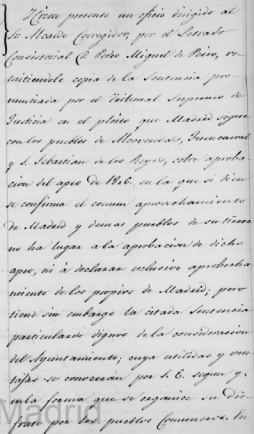 Hízose presente un oficio dirigido al
Sr. Alcalde Corregidor, por el Letrado
Consistorial D. Pedro Miguel de Peiro, re-
mitiendole copia de la Sentencia pro-
nunciada por el Tribunal Supremo de
Justicia en el pleito, que Madrid sigue
con los pueblos de Alcovendas, Fuencarral
y S. Sebastian de los Reyes, sobre aproba-
cion del apeo de 1826, en la que si bien
se confirma el comun aprovechamiento
de Madrid y demas pueblos de su tierra
no ha lugar a la aprobacion de dicho
apeo, ni á declarar exclusivo aprobecha-
miento de los propios de Madrid; pero
tiene sin embargo la citada Sentencia
particulares dignos de la consideracion
del Ayuntamiento; cuya utilidad y ven-
tajas se conoceran por S. E. segun y
en la forma que se organice su dis-
frute por los pueblos Comuneros. En
Madrid